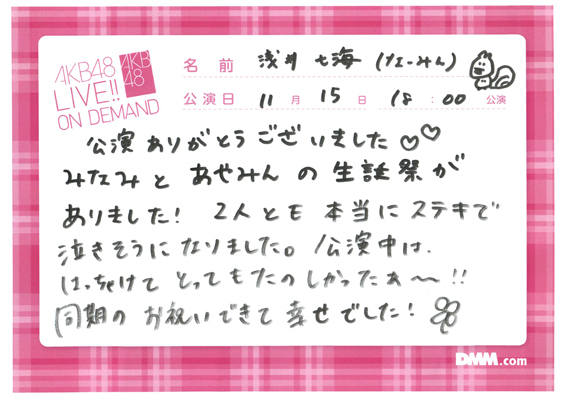 AKB48
LIVE!!
ON DEMAND
AKB
48
名前 浅井 七海 (なーみん)
公演日 11月 15日 18:00 公演
公演ありがとうございました♡♡
みなみと あやみんの生誕祭が
ありました! 2人とも 本当にステキで
泣きそうになりました。公演中は、
はっちゃけて とってもたのしかったぁ〜!!
同期の お祝いできて 幸せでした!
DMM.com